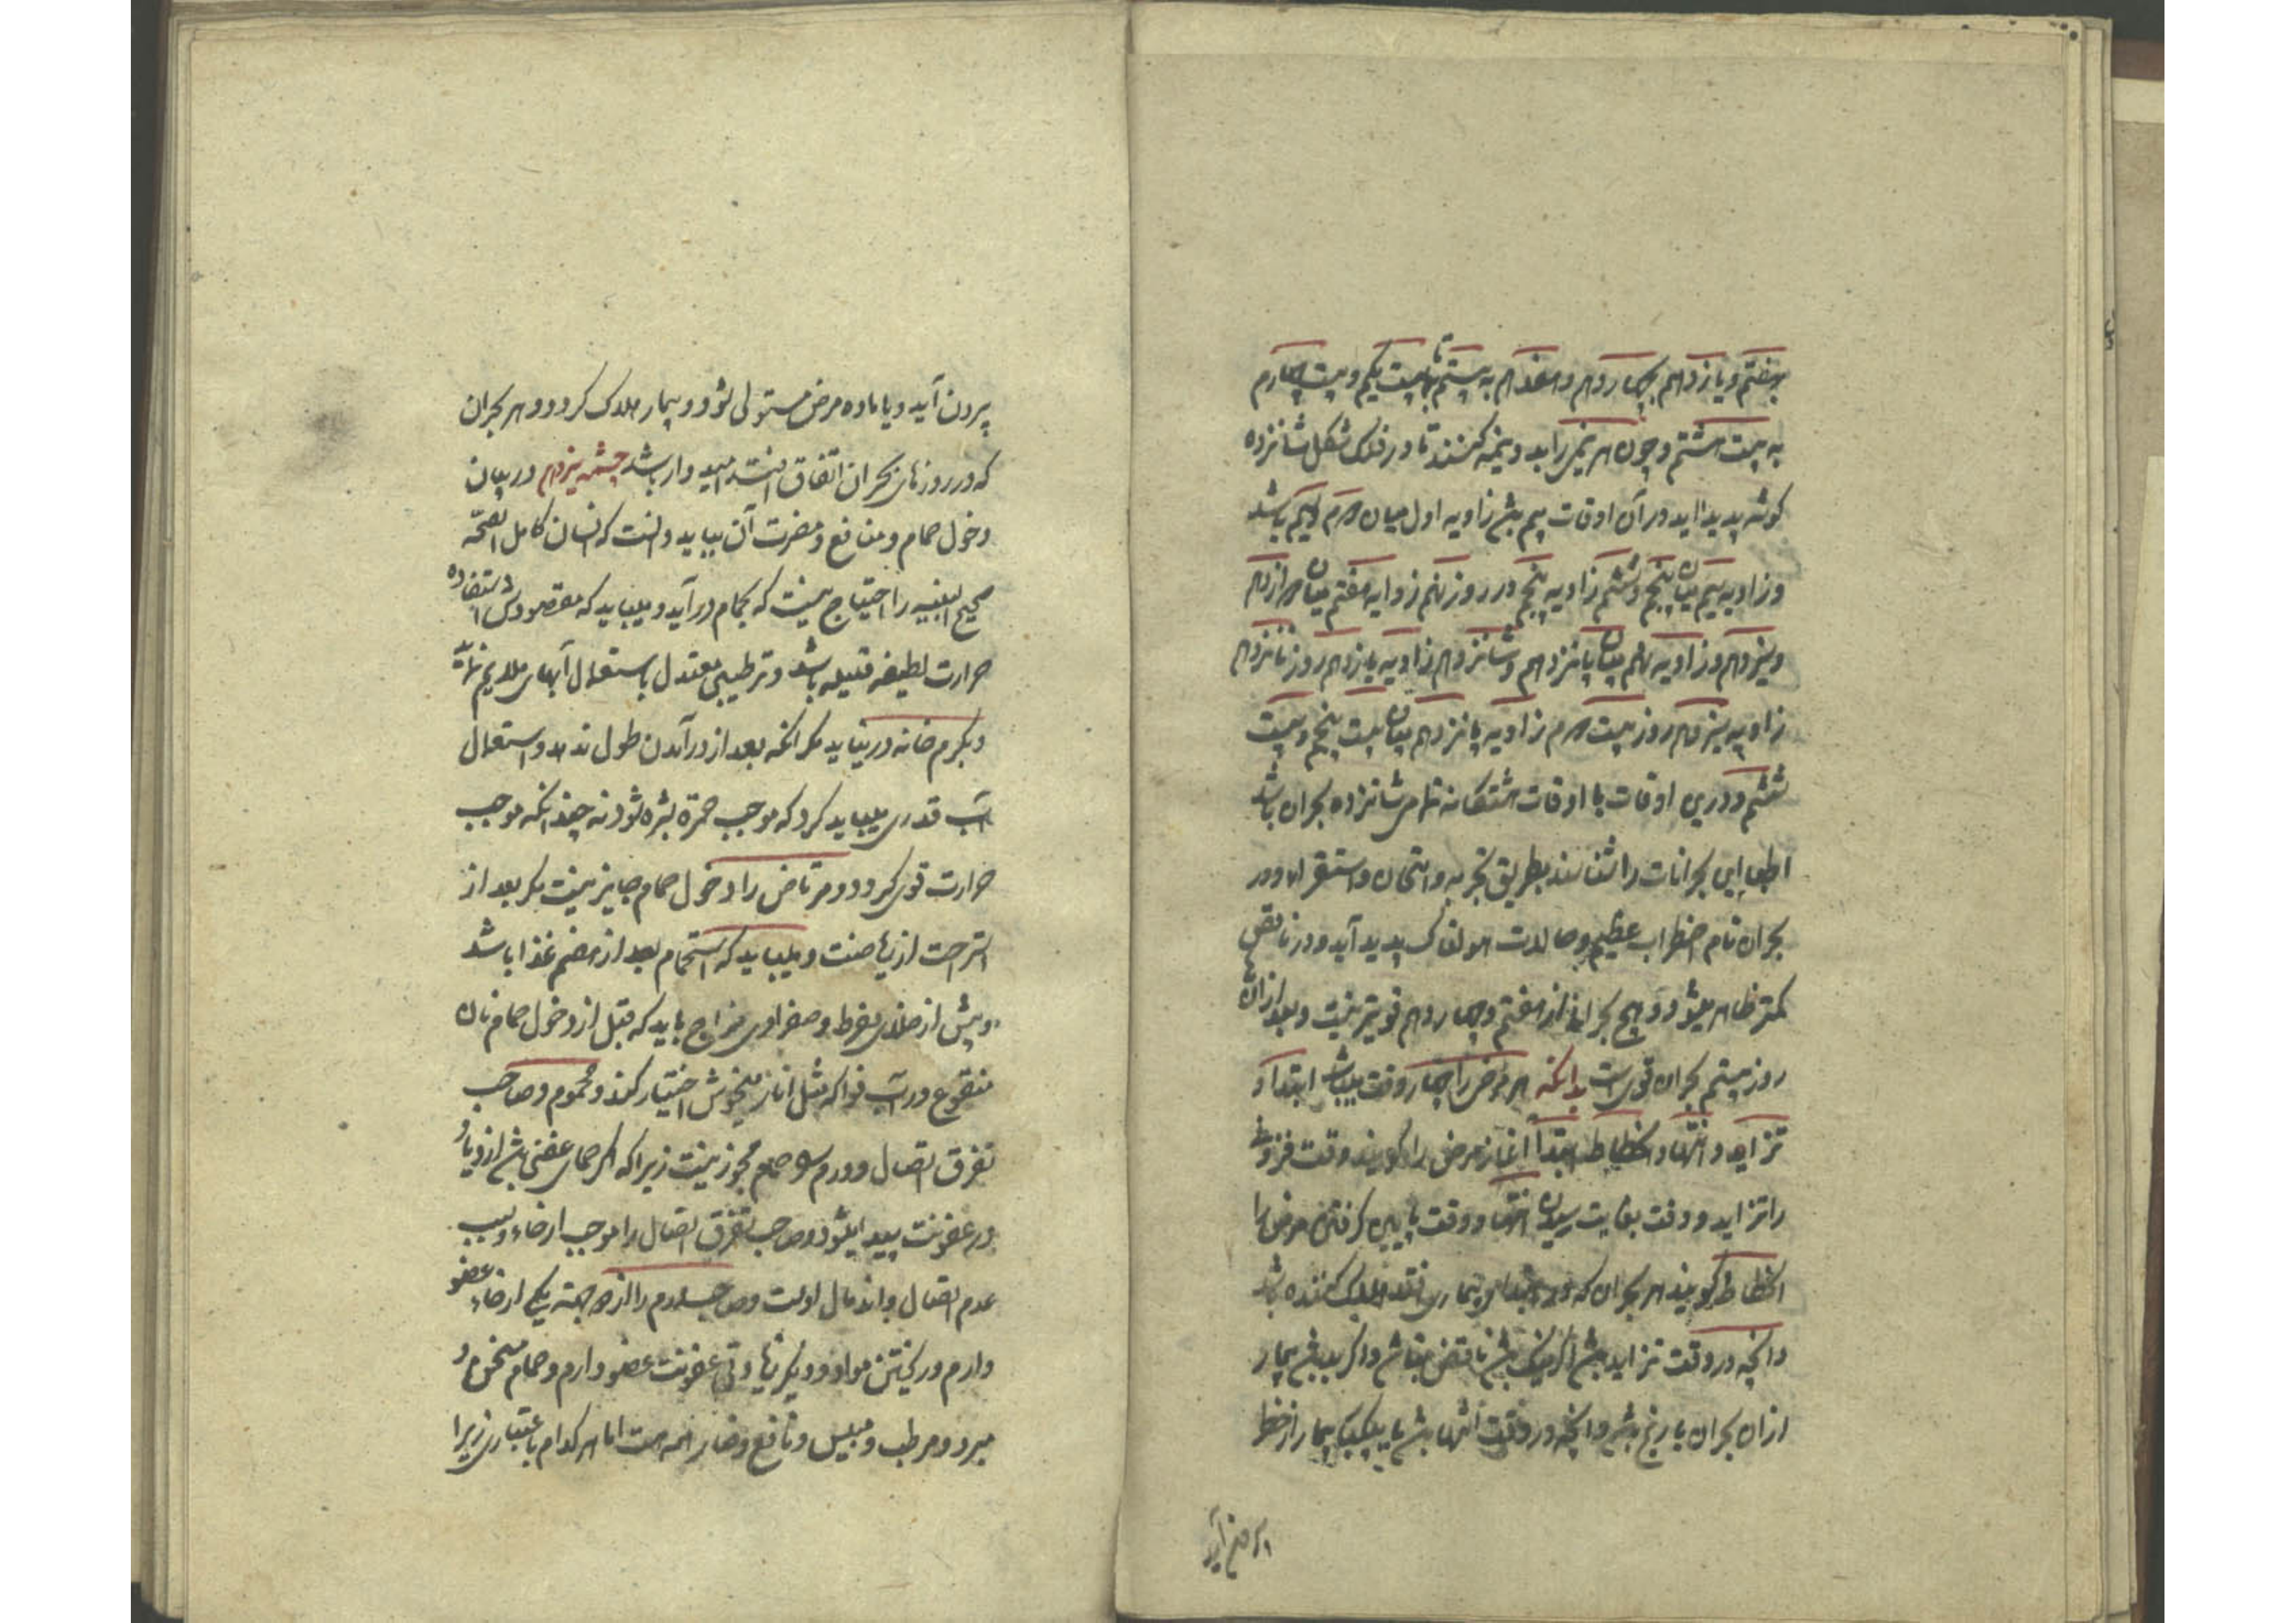 بهفتم و یازدهم بچهاردهم و هفدهم به بیستم تا به بیست یکم و بیست چهارم
به بیست هشتم و چون هر نیمی را بدو نیمه کنند تا در فلک شکل شانزده
گوشه پدید اید در آن اوقات زاویه اول میان باشد
و زاویه سیم میان پنجم و ششم زاویه پنجم در روز نهم زوایه هفتم میان
و سیزدهم و زاویه نهم میان پانزدهم و شانزدهم زاویه یازدهم روز
زاویه سیزدهم روز بیست زاویه پانزدهم میان بیست پنجم و بیست
ششم و درین اوقات با اوقات هشتکانه تمامی شانزده بحران باشد
اطبا این بحرانات را شناسند بطریق تجربه و امتحان و استقراء و در
بحران تام اضطراب عظیم و حالات هولناک پدید آید و در ناقص
کمتر ظاهر میشود و هیچ بحرانی از هفتم و چهاردهم قویتر نیست و بعد ازان
روز بیستم بحران قوی است بدانکه هر مرض را چهار وقت میباشد ابتدا و
تزاید و انتها و انحطاط ابتدا آغاز مرض را گویند و وقت فزونی
را تزاید و وقت بغایت رسیدن انتها و وقت پایین گرفتن مرض را
انحطاط گویند هر بحران که در ابتدای بیماری افتد هلاک کننده باشد
و انچه در وقت تزاید باشد اگر نیک باشد ناقص باشد و اگر بد باشد بیمار
ازان بحران با رنج باشد و انچه در وقت انتها باشد یا بیمار از خطر
بیرون آید
بیرون آید و یا ماده مرض مستولی شود و بیمار هلاک گردد و هر بحران
که در روزهای بحران اتفاق افتد امید وار باشد چشمه سیزدهم در بیان
دخول حمام و منافع و مضرت آن بباید دانست که انسان کامل الصحّه
صحیح البنیه را احتیاج نیست که بحمام در آید و میباید که مقصودش استفاده
حرارت لطیفه قلیله باشد و ترطیبی معتدل باستعمال آبهای ملایم
و بگرم خانه در نیاید مگر انکه بعد از درآمدن طول ندهد و استعمال
آب قدری میباید کرد که موجب حمرة بشره شود نه چندانکه موجب
حرارت قوی گردد و مرتاض را دخول حمام جایز نیست مگر بعد از
استراحت از ریاضت و میباید که استحمام بعد از هضم غذا باشد
و پیش از خلای مفرط و صفراوی مزاج باید که قبل از دخول حمام نان
منقوع در آب فواکه مثل انار میخوش اختیار کند و محموم و صاحب
تفرق اتصال و ورم را حمام مجوز نیست زیرا که اگر حمای عفنی باشد ازدیاد
در عفونت پیدا میشود و صاحب تفرق اتصال را موجب ارخاء و سبب
عدم اتصال و اندمال اوست و صاحب ورم را از دو جهة یکی ارخاء عضو
وارم و ریختن مواد و دیگر عفونت عضو وارم و حمام مسخن و
مبرد و مرطب و میبس و نافع و ضار همه هست اما هر کدام باعتباری زیرا